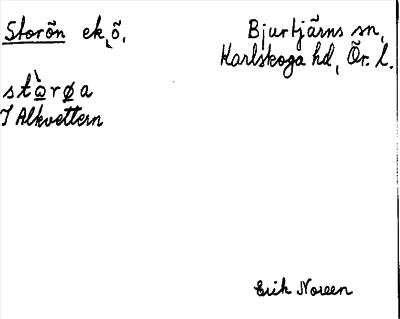 Storön ek. ö.
Bjurtjärns sn,
Karlskoga hd, Ör. l.
stòrøa
I Alkvettern
Erik Noreen